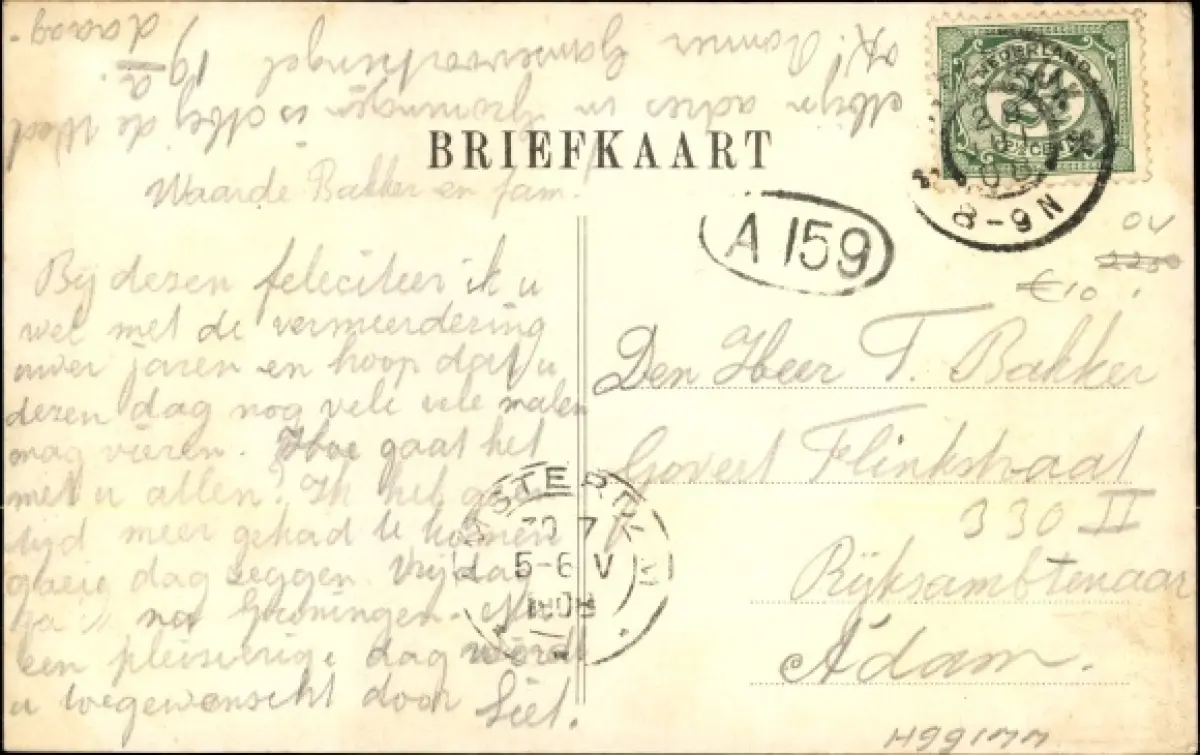 Mijn adres in Groningen is Mej de Wed
daag-
BRIEFKAART
Waarde Bakker en fam.
Bij dezen feleciteer ik u
wel met de vermeerdering
uwer jaren en hoop dat u
dezen dag nog vele vele malen
mag vieren. Hoe gaat het
met u allen? Ik heb geen
tijd meer gehad te komen
goeie dag zeggen. Vrijdag
ga ik na Groningen.
een pleisierige dag wordt
u toegewenscht door Siet.
NEDERLAND
8-9 N
A 159
OV
2250
€10
Den Heer T. Bakker
Govert Flinkstraat
330 II
Rijksambtenaar
A'dam.
AMSTERDAM
30 7
5-6 V
1908
H991777